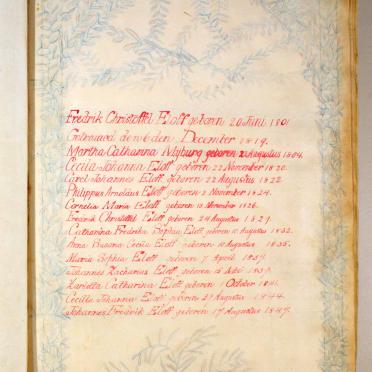 Fredrik Christoffel Eloff geboren 20 Juni 1801
Getrouwd den 6 den December 1819.
Martha Catharina Myburg geboren Augustus 1804.
Cecilia Johanna Eloff geboren 22 November 1820.
Carel Johannes Eloff geboren 22 Augustus 1822
Philippus Arnoldus Eloff geboren 2 November 1824.
Cornelia Maria Eloff geboren 13 November 1826.
Fredrik Christoffel Eloff geboren 24 Augustus 1829.
Catharina Fredrika Sophia Eloff geboren 10 Augustus 1832.
Anna Susana Cecilia Eloff geboren 10 Augustus 1835.
Maria Sophia Eloff geboren 7 April 1837.
Johannes Zacharius Eloff geboren 1839.
Catharina Eloff geboren 1 October 1841.
Cecilia Johanna Eloff geboren 27 Augustus 1844.
Johannes Fredrik Eloff geboren 17 Augustus 1847.